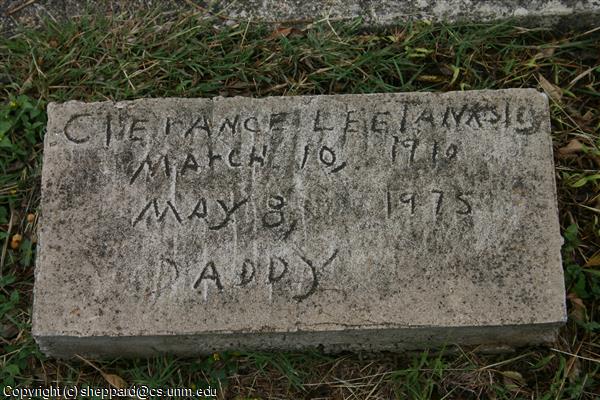 CLERANCE LEE TANKSLY
MARCH 10, 1910
MAY 8, 1975
DADDY
Copyright (c) sheppard@cs.unm.edu